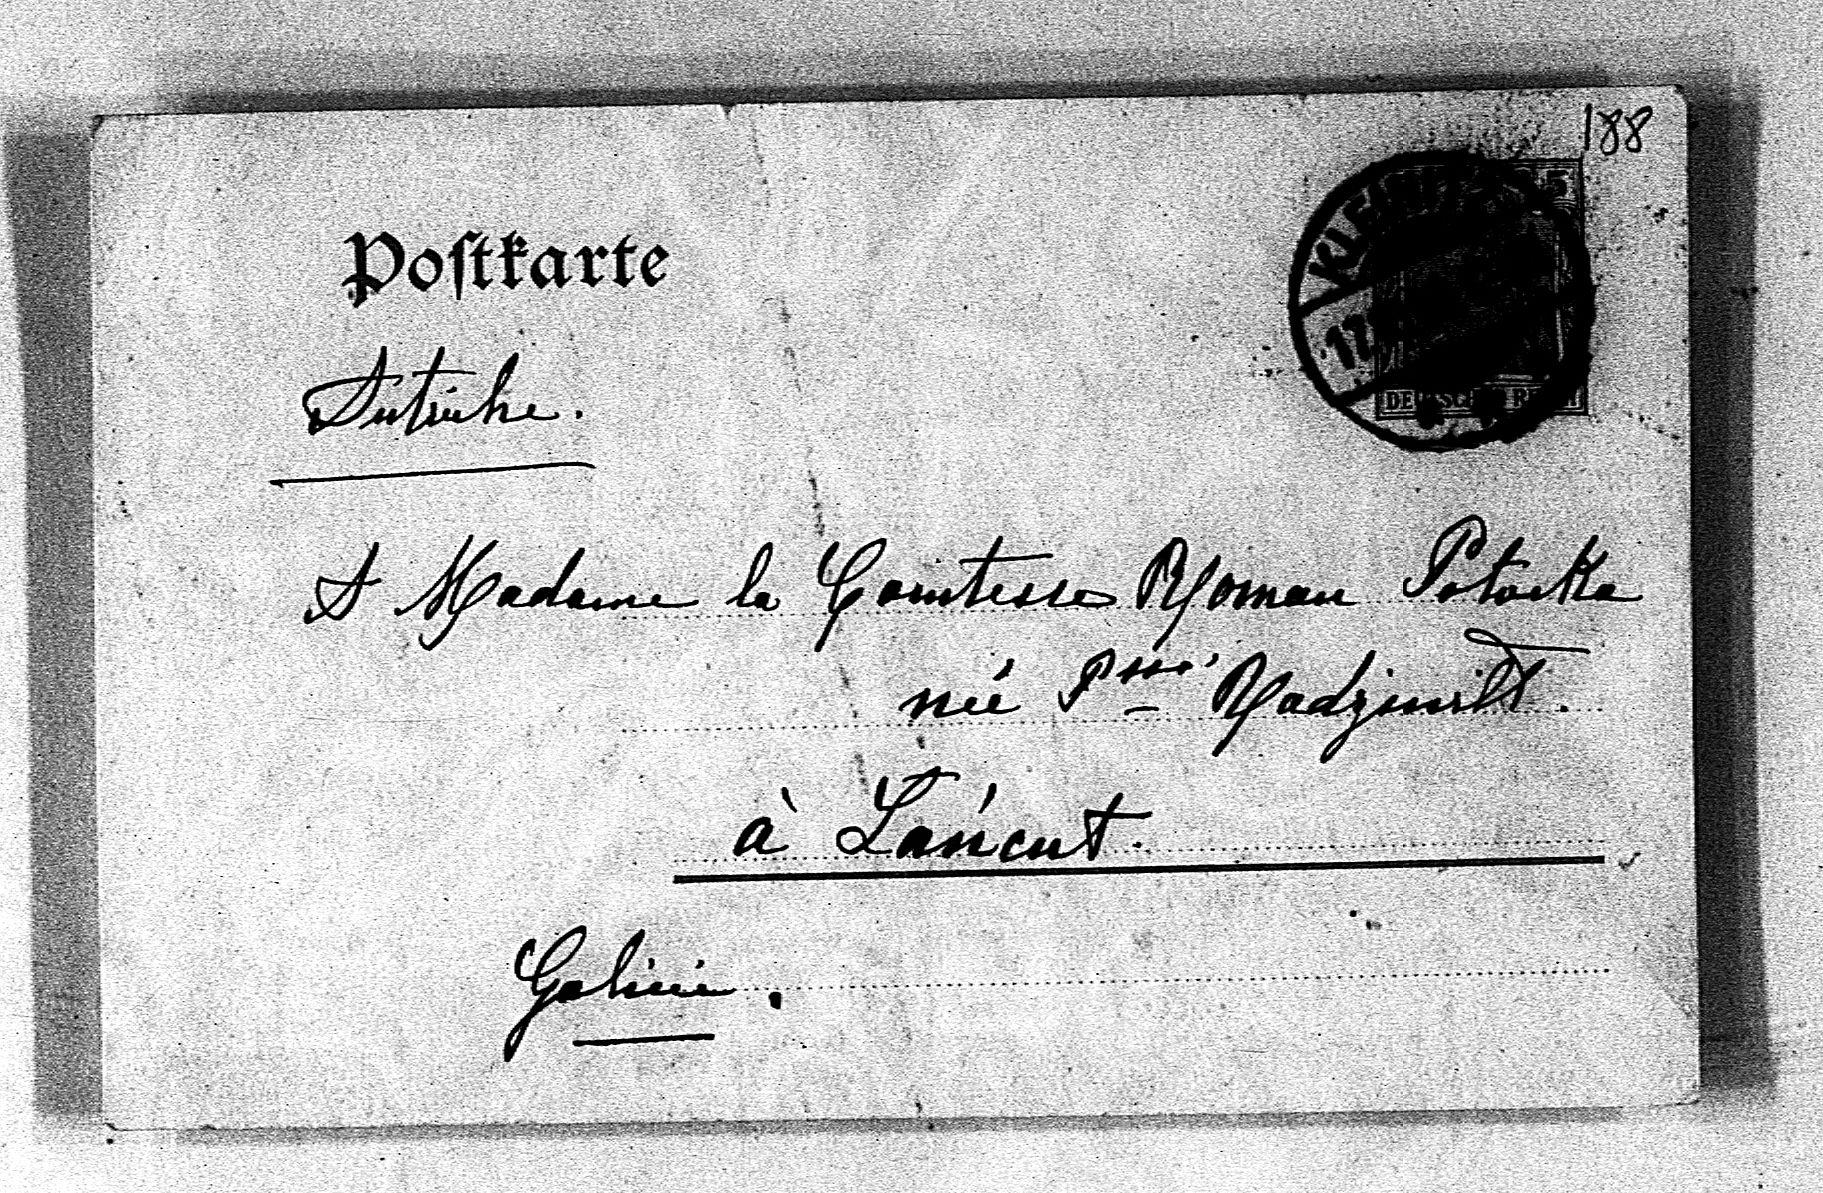 188
Postkarte
5
17
DEUTSCHES REICH
Autriche.
A Madame la Comtesse Roman Potocka
née Psse Radziwill.
à Łańcut.
Galicie.